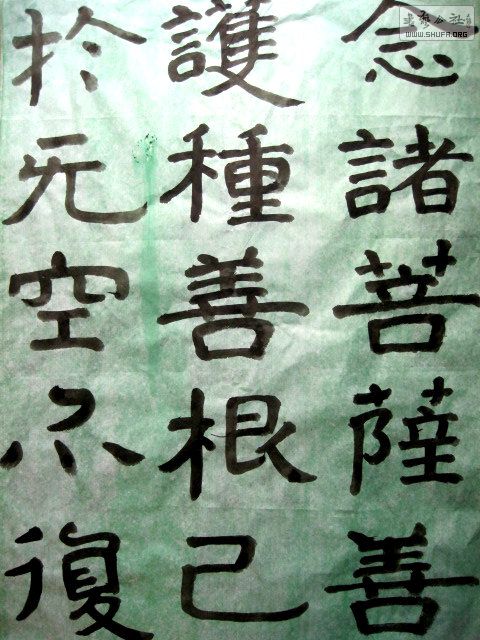 念諸菩薩善
護種善根已
扵无空不復
WWW.SHUFA.ORG